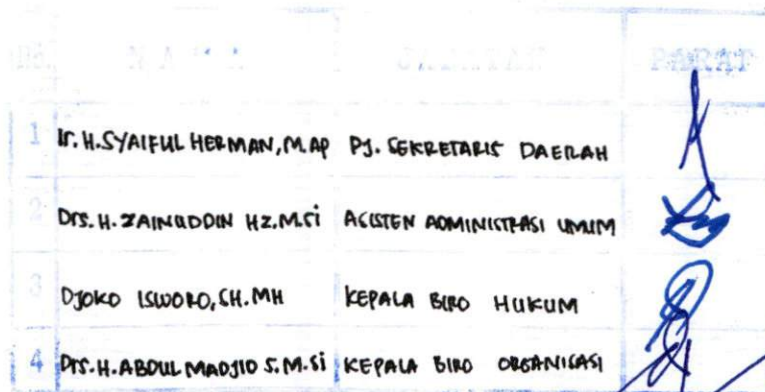 NO. NAMA JABATAN PARAF
1 Ir. H. SYAIFUL HERMAN, M.AP PJ. SEKRETARIS DAERAH
2 Drs. H. ZAINUDDIN HZ. M.Si ASISTEN ADMINISTRASI UMUM
3 DJOKO ISWORO, SH. MH KEPALA BIRO HUKUM
4 Drs. H. ABDUL MADJID S. M.Si KEPALA BIRO ORGANISASI